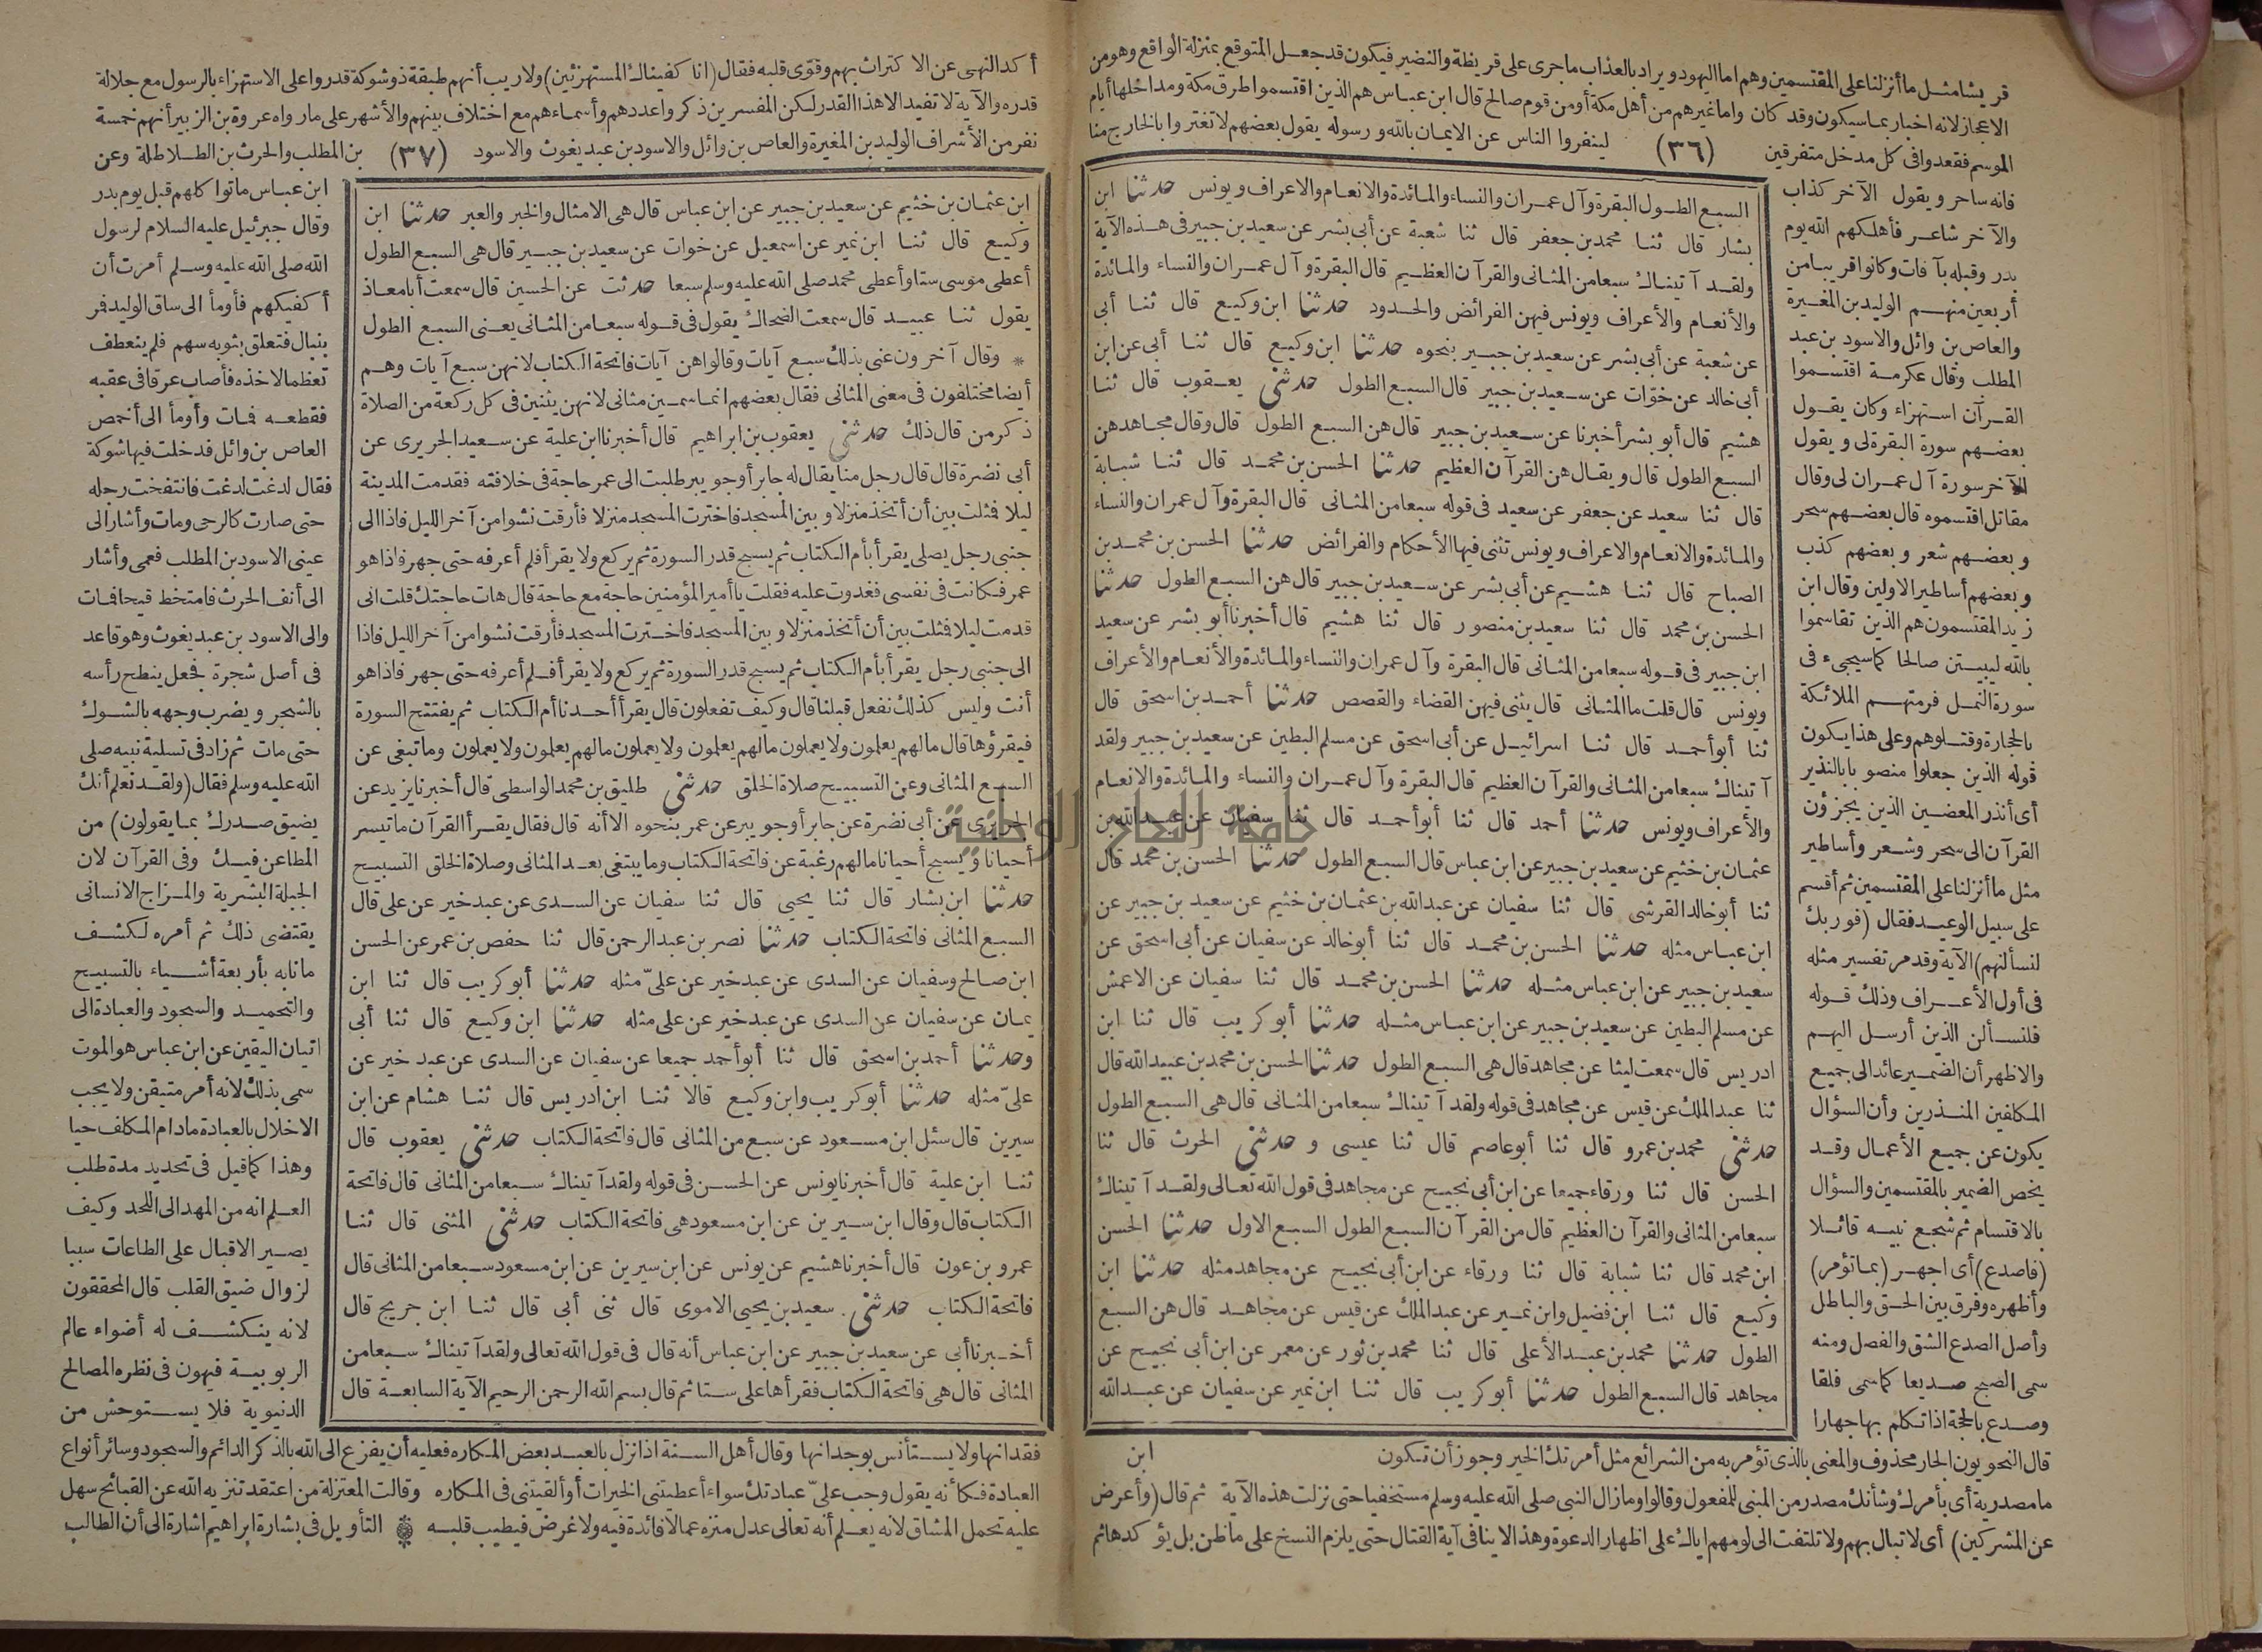 قريشا مثل ما أنزلنا على المقتسمين وهم اما اليهود ويراد بالعذاب ما جرى على قريظة والنضير فيكون قد جعل المتوقع بمنزلة الواقع وهو من
الاعجاز لانه اخبار بما سيكون وقد كان واما غيرهم من أهل مكة أو من قوم صالح قال ابن عباس هم الذين اقتسموا طرق مكة ومداخلها أيام
الموسم فقعدوا فى كل مدخل متفرقين (٣٦) لينفروا الناس عن الايمان بالله ورسوله يقول بعضهم لا تغتروا بالخارج منا
فانه ساحر ويقول الآخر كذاب
والآخر شاعر فأهلكهم الله يوم
بدر وقبله بآفات وكانوا قريبا من
أربعين منهم الوليد بن المغيرة
والعاص بن وائل والاسود بن عبد
المطلب وقال عكرمة اقتسموا
القرآن استهزاء وكان يقول
بعضهم سورة البقرة لى ويقول
الآخر سورة آل عمران لى وقال
مقاتل اقتسموه قال بعضهم سحر
وبعضهم شعر وبعضهم كذب
وبعضهم أساطير الاولين وقال ابن
زيد المقتسمون هم الذين تقاسموا
بالله ليبيتن صالحا كما سيجىء فى
سورة النمل فرمتهم الملائكة
بالحجارة وقتلوهم وعلى هذا يكون
قوله الذين جعلوا منصوبا بالنذير
أى أنذر المعضين الذين يجزؤن
القرآن الى سحر وشعر وأساطير
مثل ما أنزلنا على المقتسمين ثم أقسم
على سبيل الوعيد فقال (فوربك
لنسألنهم) الآية وقد مر تفسير مثله
فى أول الأعراف وذلك قوله
فلنسألن الذين أرسل اليهم
والاظهر أن الضمير عائد الى جميع
المكلفين المنذرين وأن السؤال
يكون عن جميع الأعمال وقد
يخص الضمير بالمقتسمين والسؤال
بالاقتسام ثم شجع نبيه قائلا
(فاصدع) أى اجهر (بما تؤمر)
وأظهره وفرق بين الحق والباطل
وأصل الصدع الشق والفصل ومنه
سمى الصبح صديعا كما سمى فلقا
وصدع بالحجة اذا تكلم بها جهارا
السبع الطول البقرة وآل عمران والنساء والمائدة والانعام والاعراف ويونس حدثنا ابن
بشار قال ثنا محمد بن جعفر قال ثنا شعبة عن أبى بشر عن سعيد بن جبير فى هذه الآية
ولقد آتيناك سبعا من المثانى والقرآن العظيم قال البقرة وآل عمران والنساء والمائدة
والأنعام والأعراف ويونس فيهن الفرائض والحدود حدثنا ابن وكيع قال ثنا أبى
عن شعبة عن أبى بشر عن سعيد بن جبير بنحوه حدثنا ابن وكيع قال ثنا أبى عن ابن
أبى خالد عن خوّات عن سعيد بن جبير قال السبع الطول حدثنى يعقوب قال ثنا
هشيم قال أبو بشر أخبرنا عن سعيد بن جبير قال هن السبع الطول قال وقال مجاهد هن
السبع الطول قال ويقال هن القرآن العظيم حدثنا الحسن بن محمد قال ثنا شبابة
قال ثنا سعيد عن جعفر عن سعيد فى قوله سبعا من المثانى قال البقرة وآل عمران والنساء
والمائدة والانعام والاعراف ويونس تثنى فيها الأحكام والفرائض حدثنا الحسن بن محمد بن
الصباح قال ثنا هشيم عن أبى بشر عن سعيد بن جبير قال هن السبع الطول حدثنا
الحسن بن محمد قال ثنا سعيد بن منصور قال ثنا هشيم قال أخبرنا أبو بشر عن سعيد
ابن جبير فى قوله سبعا من المثانى قال البقرة وآل عمران والنساء والمائدة والأنعام والأعراف
ويونس قال قلت ما المثانى قال يثنى فيهن القضاء والقصص حدثنا أحمد بن اسحق قال
ثنا أبو أحمد قال ثنا اسرائيل عن أبى اسحق عن مسلم البطين عن سعيد بن جبير ولقد
آتيناك سبعا من المثانى والقرآن العظيم قال البقرة وآل عمران والنساء والمائدة والانعام
والأعراف ويونس حدثنا أحمد قال ثنا أبو أحمد قال ثنا سفيان عن عبد الله بن
عثمان بن خثيم عن سعيد بن جبير عن ابن عباس قال السبع الطول حدثنا الحسن بن محمد قال
ثنا أبو خالد القرشى قال ثنا سفيان عن عبد الله بن عثمان بن خثيم عن سعيد بن جبير عن
ابن عباس مثله حدثنا الحسن بن محمد قال ثنا أبو خالد عن سفيان عن أبى اسحق عن
سعيد بن جبير عن ابن عباس مثله حدثنا الحسن بن محمد قال ثنا سفيان عن الاعمش
عن مسلم البطين عن سعيد بن جبير عن ابن عباس مثله حدثنا أبو كريب قال ثنا ابن
ادريس قال سمعت ليثا عن مجاهد قال هى السبع الطول حدثنا الحسن بن محمد بن عبيد الله قال
ثنا عبد الملك عن قيس عن مجاهد فى قوله ولقد آتيناك سبعا من المثانى قال هى السبع الطول
حدثنى محمد بن عمرو قال ثنا أبو عاصم قال ثنا عيسى و حدثنى الحرث قال ثنا
الحسن قال ثنا ورقاء جميعا عن ابن أبى نجيح عن مجاهد فى قول الله تعالى ولقد آتيناك
سبعا من المثانى والقرآن العظيم قال من القرآن السبع الطول السبع الاول حدثنا الحسن
ابن محمد قال ثنا شبابة قال ثنا ورقاء عن ابن أبى نجيح عن مجاهد مثله حدثنا ابن
وكيع قال ثنا ابن فضيل وابن نمير عن عبد الملك عن قيس عن مجاهد قال هن السبع
الطول حدثنا محمد بن عبد الأعلى قال ثنا محمد بن ثور عن معمر عن ابن أبى نجيح عن
مجاهد قال السبع الطول حدثنا أبو كريب قال ثنا ابن نمير عن سفيان عن عبد الله
ابن
قال النحويون الجار محذوف والمعنى بالذى تؤمر به من الشرائع مثل أمرتك الخير وجوز أن تكون
ما مصدرية أى بأمرك وشأنك مصدر من المبنى للمفعول وقالوا وما زال النبى صلى الله عليه وسلم مستخفيا حتى نزلت هذه الآية ثم قال (وأعرض
عن المشركين) أى لا تبال بهم ولا تلتفت الى لومهم اياك على اظهار الدعوة وهذا لا ينافى آية القتال حتى يلزم النسخ على ما ظن بل يؤكدها ثم
أكد النهى عن الاكتراث بهم وقوّى قلبه فقال (انا كفيناك المستهزئين) ولا ريب أنهم طبقة ذو شوكة قدروا على الاستهزاء بالرسول مع جلالة
قدره والآية لا تفيد الا هذا القدر لكن المفسرين ذكروا عددهم وأسماءهم مع اختلاف بينهم والأشهر على ما رواه عروة بن الزبير أنهم خمسة
نفر من الأشراف الوليد بن المغيرة والعاص بن وائل والاسود بن عبد يغوث والاسود (٣٧) بن المطلب والحرث بن الطلاطلة وعن
ابن عثمان بن خثيم عن سعيد بن جبير عن ابن عباس قال هى الامثال والخبر والعبر حدثنا ابن
وكيع قال ثنا ابن نمير عن اسمعيل عن خوات عن سعيد بن جبير قال هى السبع الطول
أعطى موسى ستا وأعطى محمد صلى الله عليه وسلم سبعا حدثت عن الحسين قال سمعت أبا معاذ
يقول ثنا عبيد قال سمعت الضحاك يقول فى قوله سبعا من المثانى يعنى السبع الطول
* وقال آخرون عنى بذلك سبع آيات وقالوا هن آيات فاتحة الكتاب لانهن سبع آيات وهم
أيضا مختلفون فى معنى المثانى فقال بعضهم انما سمين مثانى لانهن يثنين فى كل ركعة من الصلاة
ذكر من قال ذلك حدثنى يعقوب بن ابراهيم قال أخبرنا ابن علية عن سعيد الجريرى عن
أبى نضرة قال قال رجل منا يقال له جابر أو جويبر طلبت الى عمر حاجة فى خلافته فقدمت المدينة
ليلا فمثلت بين أن أتخذ منزلا وبين المسجد فاخترت المسجد منزلا فأرقت نشوا من آخر الليل فاذا الى
جنبى رجل يصلى يقرأ بأم الكتاب ثم يسبح قدر السورة ثم يركع ولا يقرأ فلم أعرفه حتى جهر فاذا هو
عمر فكانت فى نفسى فغدوت عليه فقلت يا أمير المؤمنين حاجة مع حاجة قال هات حاجتك قلت انى
قدمت ليلا فمثلت بين أن أتخذ منزلا وبين المسجد فاخترت المسجد فأرقت نشوا من آخر الليل فاذا
الى جنبى رجل يقرأ بأم الكتاب ثم يسبح قدر السورة ثم يركع ولا يقرأ فلم أعرفه حتى جهر فاذا هو
أنت وليس كذلك نفعل قبلنا قال وكيف تفعلون قال يقرأ أحدنا أم الكتاب ثم يفتتح السورة
فيقرؤها قال ما لهم يعلمون ولا يعملون ما لهم يعلمون ولا يعملون ما لهم يعلمون ولا يعملون وما تبغى عن
السبع المثانى وعن التسبيح صلاة الخلق حدثنى طليق بن محمد الواسطى قال أخبرنا يزيد عن
الجريرى عن أبى نضرة عن جابر أو جويبر عن عمر بنحوه الا أنه قال فقال يقرأ القرآن ما تيسر
أحيانا ويسبح أحيانا ما لهم رغبة عن فاتحة الكتاب وما يبتغى بعد المثانى وصلاة الخلق التسبيح
حدثنا ابن بشار قال ثنا يحيى قال ثنا سفيان عن السدى عن عبد خير عن على قال
السبع المثانى فاتحة الكتاب حدثنا نصر بن عبد الرحمن قال ثنا حفص بن عمر عن الحسن
ابن صالح وسفيان عن السدى عن عبد خير عن علىّ مثله حدثنا أبو كريب قال ثنا ابن
يمان عن سفيان عن السدى عن عبد خير عن على مثله حدثنا ابن وكيع قال ثنا أبى
وحدثنا أحمد بن اسحق قال ثنا أبو أحمد جميعا عن سفيان عن السدى عن عبد خير عن
علىّ مثله حدثنا أبو كريب وابن وكيع قالا ثنا ابن ادريس قال ثنا هشام عن ابن
سيرين قال سئل ابن مسعود عن سبع من المثانى قال فاتحة الكتاب حدثنى يعقوب قال
ثنا ابن علية قال أخبرنا يونس عن الحسن فى قوله ولقد آتيناك سبعا من المثانى قال فاتحة
الكتاب قال وقال ابن سيرين عن ابن مسعود هى فاتحة الكتاب حدثنى المثنى قال ثنا
عمرو بن عون قال أخبرنا هشيم عن يونس عن ابن سيرين عن ابن مسعود سبعا من المثانى قال
فاتحة الكتاب حدثنى سعيد بن يحيى الاموى قال ثنى أبى قال ثنا ابن جريج قال
أخبرنا أبى عن سعيد بن جبير عن ابن عباس أنه قال فى قول الله تعالى ولقد آتيناك سبعا من
المثانى قال هى فاتحة الكتاب فقرأها على ستا ثم قال بسم الله الرحمن الرحيم الآية السابعة قال
ابن عباس ماتوا كلهم قبل يوم بدر
وقال جبرئيل عليه السلام لرسول
الله صلى الله عليه وسلم أمرت أن
أكفيكهم فأومأ الى ساق الوليد فمر
بنبال فتعلق بثوبه سهم فلم ينعطف
تعظما لاخذه فأصاب عرقا فى عقبه
فقطعه فمات وأومأ الى أخمص
العاص بن وائل فدخلت فيها شوكة
فقال لدغت لدغت فانتفخت رجله
حتى صارت كالرحى ومات وأشار الى
عينى الاسود بن المطلب فعمى وأشار
الى أنف الحرث فامتخط قيحا فمات
والى الاسود بن عبد يغوث وهو قاعد
فى أصل شجرة فجعل ينطح رأسه
بالشجر ويضرب وجهه بالشوك
حتى مات ثم زاد فى تسلية نبيه صلى
الله عليه وسلم فقال (ولقد نعلم أنك
يضيق صدرك بما يقولون) من
المطاعن فيك وفى القرآن لان
الجبلة البشرية والمزاج الانسانى
يقتضى ذلك ثم أمره لكشف
ما نابه بأربعة أشياء بالتسبيح
والتحميد والسجود والعبادة الى
اتيان اليقين عن ابن عباس هو الموت
سمى بذلك لانه أمر متيقن ولا يجب
الاخلال بالعبادة ما دام المكلف حيا
وهذا كما قيل فى تحديد مدة طلب
العلم انه من المهد الى اللحد وكيف
يصير الاقبال على الطاعات سببا
لزوال ضيق القلب قال المحققون
لانه ينكشف له أضواء عالم
الربوبية فيهون فى نظره المصالح
الدنيوية فلا يستوحش من
فقدانها ولا يستأنس بوجدانها وقال أهل السنة اذا نزل بالعبد بعض المكاره فعليه أن يفزع الى الله بالذكر الدائم والسجود وسائر أنواع
العبادة فكأنه يقول وجب علىّ عبادتك سواء أعطيتنى الخيرات أو ألقيتنى فى المكاره وقالت المعتزلة من اعتقد تنزيه الله عن القبائح سهل
عليه تحمل المشاق لانه يعلم أنه تعالى عدل منزه عما لا فائدة فيه ولا غرض فيطيب قلبه * التأويل فى بشارة ابراهيم اشارة الى أن الطالب
جامعة النجاح الوطنية